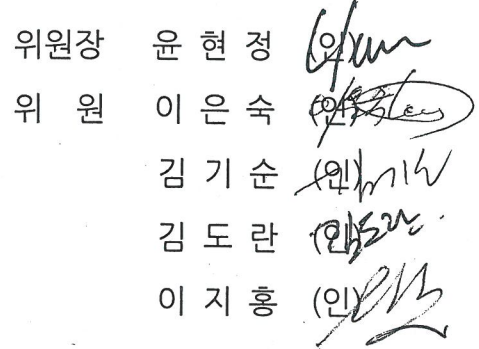 위원장 윤현정 (인)
위 원 이은숙 (인)
김기순 (인)
김도란 (인)
이지홍 (인)